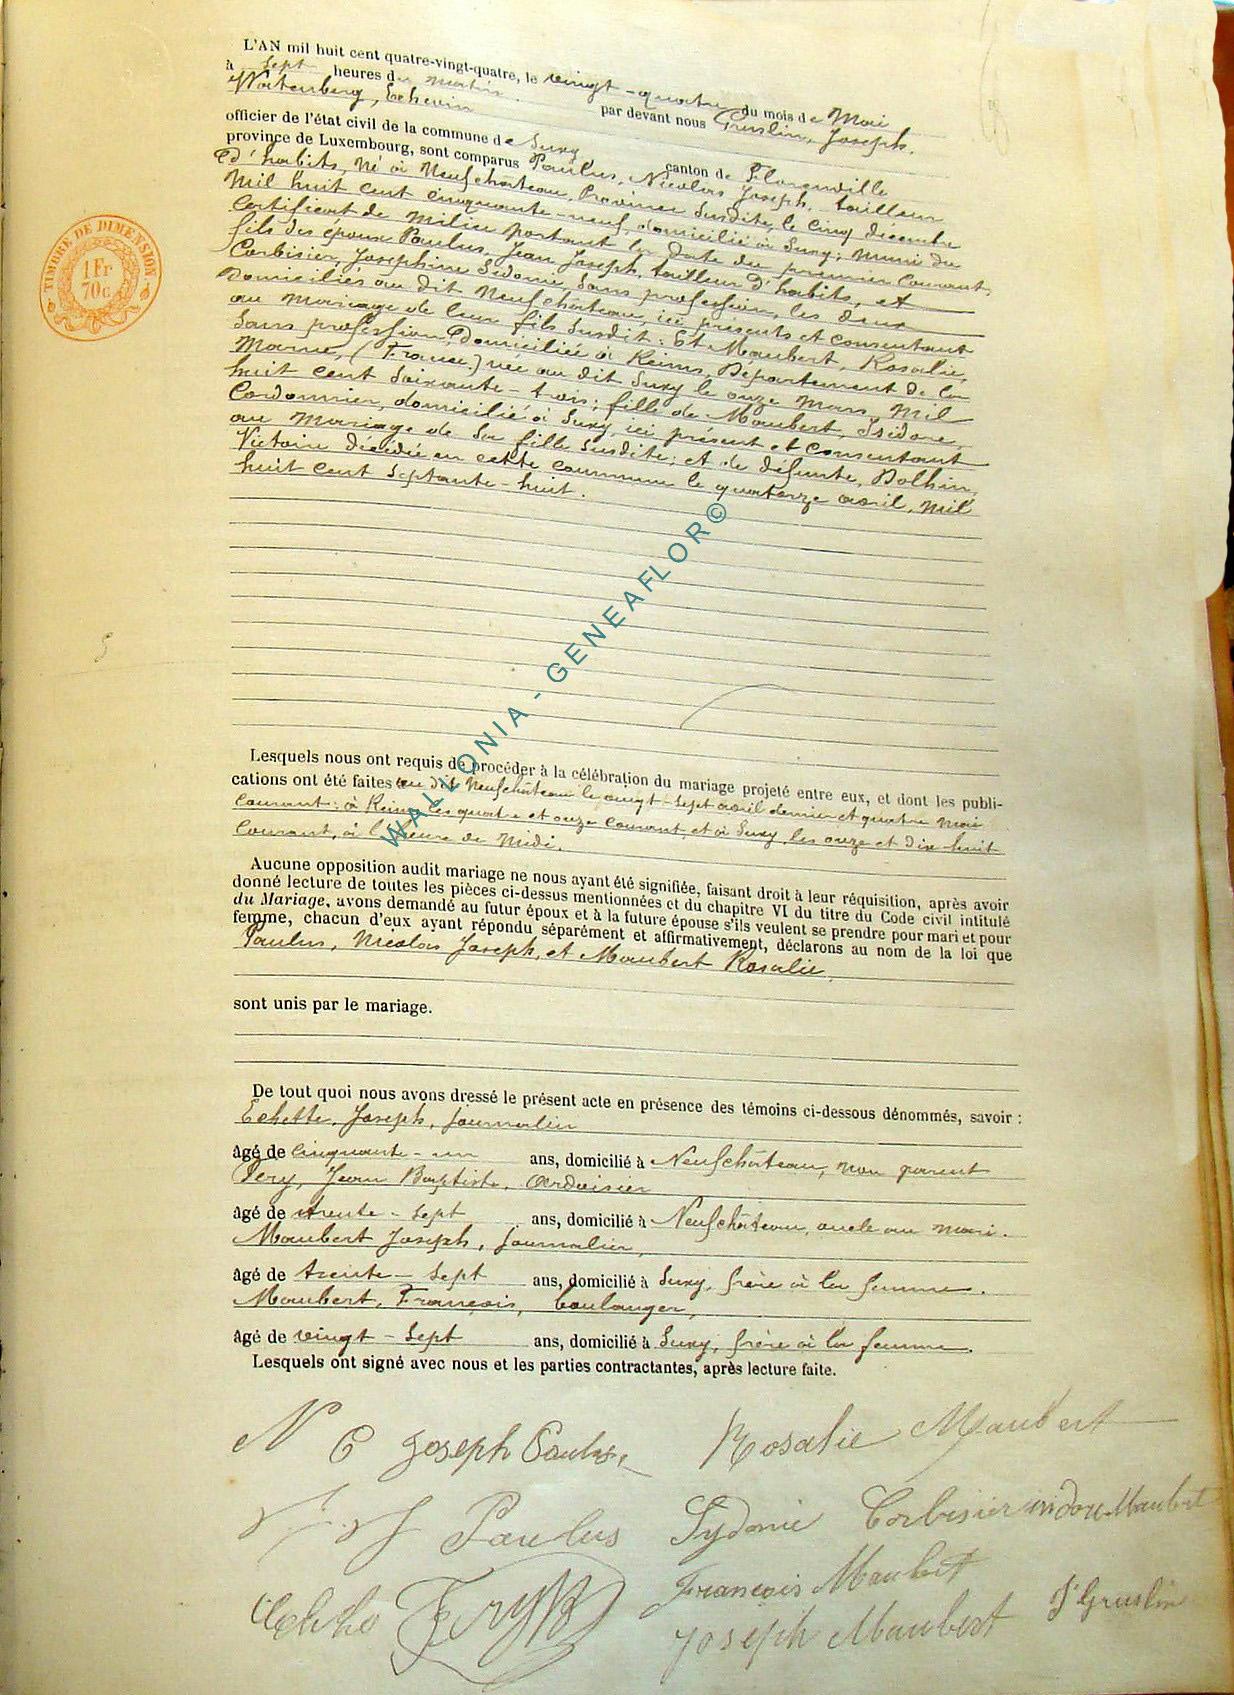 L'AN mil huit cent quatre-vingt-quatre, le vingt-quatre du mois de Mai
à sept heures du matin. par devant nous Gruslin, Joseph.
Watenberg, Echevin
officier de l'état civil de la commune de Suxy canton de Florenville
province de Luxembourg, sont comparus Paulus, Nicolas Joseph, tailleur
d'habits, né à Neufchâteau, Province susdite, le cinq décembre
mil huit cent cinquante-neuf, domicilié à Suxy; muni du
certificat de milice portant la date du premier courant,
fils des époux Paulus, Jean Joseph, tailleur d'habits, et
Corbisier, Joséphine Sidonie, sans profession, les deux
domiciliés au dit Neufchâteau, ici présents et consentant
au mariage de leur fils susdit: Et Maubert, Rosalie,
sans profession, domiciliée à Reims, Département de la
Marne, (France.) née au dit Suxy le onze mars, mil
huit cent soixante-trois; fille de Maubert, Isidore,
Cordonnier, domicilié à Suxy, ici présent et consentant
au mariage de sa fille susdite; et de défunte, Dolhin,
Victoire décédée en cette commune le quatorze avril, mil
huit cent septante-huit.
Lesquels nous ont requis de procéder à la célébration du mariage projeté entre eux, et dont les publi-
cations ont été faites au dit Neufchâteau le vingt-sept avril dernier et quatre mai
courant; à Reims les quatre et onze courant, et à Suxy, les onze et dix huit
courant, à l'heure de midi.
Aucune opposition audit mariage ne nous ayant été signifiée, faisant droit à leur réquisition, après avoir
donné lecture de toutes les pièces ci-dessus mentionnées et du chapitre VI du titre du Code civil intitulé
du Mariage, avons demandé au futur époux et à la future épouse s'ils veulent se prendre pour mari et pour
femme, chacun d'eux ayant répondu séparément et affirmativement, déclarons au nom de la loi que
Paulus, Nicolas Joseph, et Maubert Rosalie,
sont unis par le mariage.
De tout quoi nous avons dressé le présent acte en présence des témoins ci-dessous dénommés, savoir :
Echette, Joseph, journalier
âgé de cinquante-un ans, domicilié à Neufchâteau, non parent
Jean Baptiste, ardoisier
âgé de trente-sept ans, domicilié à Neufchâteau, oncle au mari.
Maubert Joseph, journalier,
âgé de trente-sept ans, domicilié à Suxy, frère à la femme.
Maubert, François, boulanger,
âgé de vingt-sept ans, domicilié à Suxy, frère à la femme.
Lesquels ont signé avec nous et les parties contractantes, après lecture faite.
Joseph Paulus Rosalie Maubert
Paulus Sydonie Corbisier isidore Maubert
François Maubert
Joseph Maubert J Gruslin
TIMBRE DE DIMENSION
1 Fr
70c
WALLONIA - GENEAFLOR©